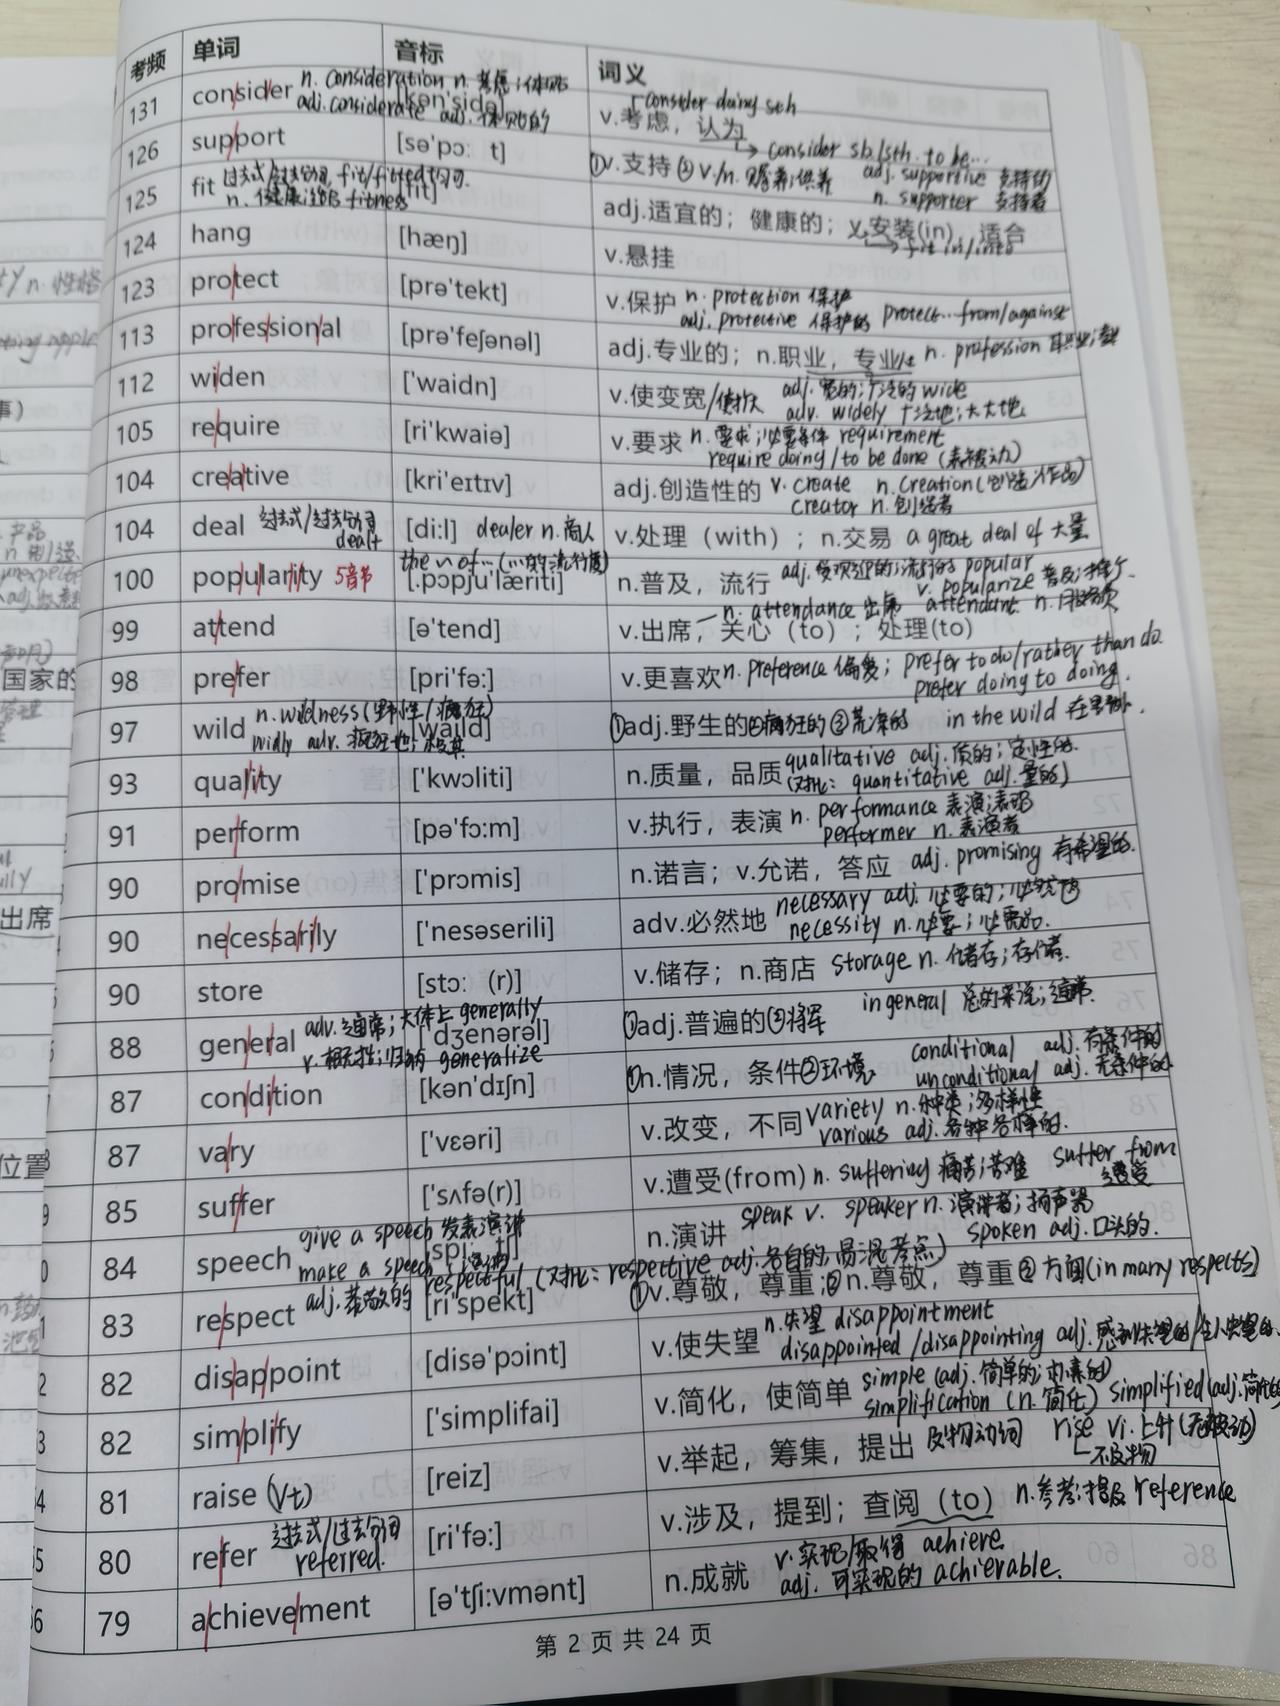 考频 单词 音标 词义
131 consider n. consideration n. 考虑；体贴 adj. considerate adj. 体贴的 [kən'sidə] v.考虑，认为 consider doing sth
consider sb/sth. to be...
126 support [sə'pɔ: t] ①v.支持 ② v./n. 赡养；供养 adj. supportive 支持的 n. supporter 支持者
125 fit 过去式/过去分词 fit/fitted均可. n. 健康；适合 fitness [fit] adj.适宜的；健康的；v.安装(in)，适合 fit in/into
124 hang [hæŋ] v.悬挂
123 protect [prə'tekt] v.保护 n. protection 保护 adj. protective 保护的 protect...from/against
113 professional [prə'feʃənəl] adj.专业的；n.职业，专业 n. profession 职业；
112 widen ['waidn] v.使变宽/使扩大 adj. 宽的；广泛的 wide adv. widely 广泛地；大大地
105 require [ri'kwaiə] v.要求 n. 要求；必要条件 requirement require doing/to be done (表被动)
104 creative [kri'eɪtɪv] adj.创造性的 v. create n. creation(创造；作品) creator n. 创造者
104 deal 过去式/过去分词 dealt [di:l] dealer n. 商人 v.处理（with）；n.交易 a great deal of 大量
100 popularity 5音节 the ~ of... (...的流行度) [.pɔpju'læriti] n.普及，流行 adj. 受欢迎的；流行的 popular v. popularize 普及；推广.
99 attend [ə'tend] v.出席，关心（to）；处理(to) n. attendance 出席 attendant n. 服务员
98 prefer [pri'fə:] v.更喜欢 n. preference 偏爱；prefer to do/rather than do. prefer doing to doing.
97 wild n. wildness (野性/疯狂) wildly adv. 疯狂地；极其 [waild] ①adj.野生的②疯狂的③荒凉的 in the wild 在野外.
93 quality ['kwɔliti] n.质量，品质 qualitative adj. 质的；定性的. (对比：quantitative adj. 量的)
91 perform [pə'fɔ:m] v.执行，表演 n. performance 表演；表现 performer n. 表演者
90 promise ['prɔmis] n.诺言；v.允诺，答应 adj. promising 有希望的.
90 necessarily ['nesəserili] adv.必然地 necessary adj. 必要的；必然的 necessity n. 必要；必需品.
90 store [stɔ: (r)] v.储存；n.商店 storage n. 储存；存储.
88 general adv. 通常；大体上 generally v. 概括；归纳 generalize ['dʒenərəl] ①adj.普遍的②将军 in general 总的来说；通常.
87 condition [kən'dɪʃn] ①n.情况，条件②环境 conditional adj. 有条件的 unconditional adj. 无条件的
87 vary ['vɛəri] v.改变，不同 variety n. 种类；多样性 various adj. 各种各样的.
85 suffer ['sʌfə(r)] v.遭受(from) n. suffering 痛苦；苦难 suffer from 遭受
84 speech give a speech 发表演讲 make a speech 演讲 [spi: tʃ] n.演讲 speak v. speaker n. 演讲者；扬声器 spoken adj. 口头的.
83 respect adj. 恭敬的 respectful (对比：respective adj. 各自的, 易混考点) [ri'spekt] ①v.尊敬，尊重；②n.尊敬，尊重 ③ 方面(in many respects)
82 disappoint [disə'pɔint] v.使失望 n. 失望 disappointment disappointed/disappointing adj. 感到失望的/令人失望的.
82 simplify ['simplifai] v.简化，使简单 simple (adj. 简单的；朴素的) simplification (n. 简化) simplified (adj. 简化的
81 raise (vt) [reiz] v.举起，筹集，提出 及物动词 rise vi. 上升 (无被动) 不及物
80 refer 过去式/过去分词 referred. [ri'fə:] v.涉及，提到；查阅（to） n. 参考；提及 reference
79 achievement [ə'tʃi:vmənt] n.成就 v. 实现/取得 achieve. adj. 可实现的 achievable.
第 2 页 共 24 页